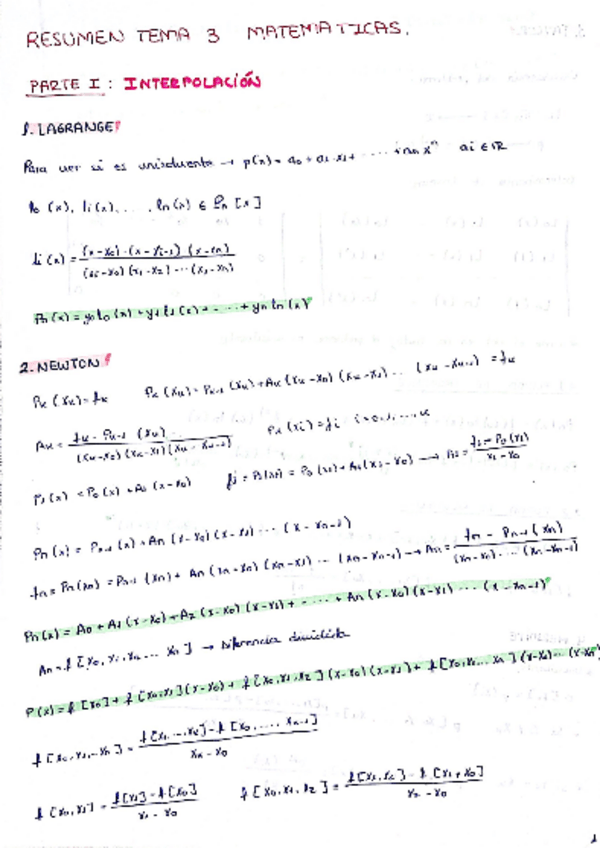 RESUMEN TEMA 3 MATEMATICAS.
PARTE I : INTERPOLACIÓN
1. LAGRANGE
Para ver si es unisolvente → p(x) = a0 + a1 x1 + ..... + an x^n ai ∈ ℝ
l0 (x), l1(x), ... ln(x) ∈ Pn [x]
li(x) =
Pn(x) = y0 l0(x) + y1 l1(x) + - ... + yn ln(x)
2. NEWTON
Pk(xk) = fk Pk(xk) = Pk-1(xk) + Ak(xk-x0)(xk-x1)... (xk-xk-1) = fk
Ak = fk - Pk-1(xk) / (xk-x0)(xk-x1)(xk-xk-1) Pk(xi) = fi i=0,1,...,k
P1(x) = P0(x) + A1(x-x0) f1 = P1(x1) = P0(x1) + A1(x1-x0) → A1 = f1 - P0(x1) / x1-x0
Pn(x) = Pn-1(x) + An(x-x0)(x-x1)... (x-xn-1)
fn = Pn(xn) = Pn-1(xn) + An(xn-x0)(xn-x1) ... (xn-xn-1) → An = fn - Pn-1(xn) / (xn-x0)...(xn-xn-1)
Pn(x) = A0 + A1(x-x0) + A2(x-x0)(x-x1) + - ... + An(x-x0)(x-x1) ... (x-xn-1)
An = f [x0, x1, x2 ... xn] → diferencia dividida
P(x) = f[x0] + f[x0,x1](x-x0) + f[x0,x1,x2](x-x0)(x-x1) + f[x0,x1...xn](x-x0)...(x-xn)
f[x0,x1,...xn] = f[x1...xk] - f[x0, .... xn-1] / xn-x0
f[x0,x1] = f[x1] - f[x0] / x1-x0 f[x0,x1,x2] = f[x1,x2] - f[x1,x0] / x2-x0
1